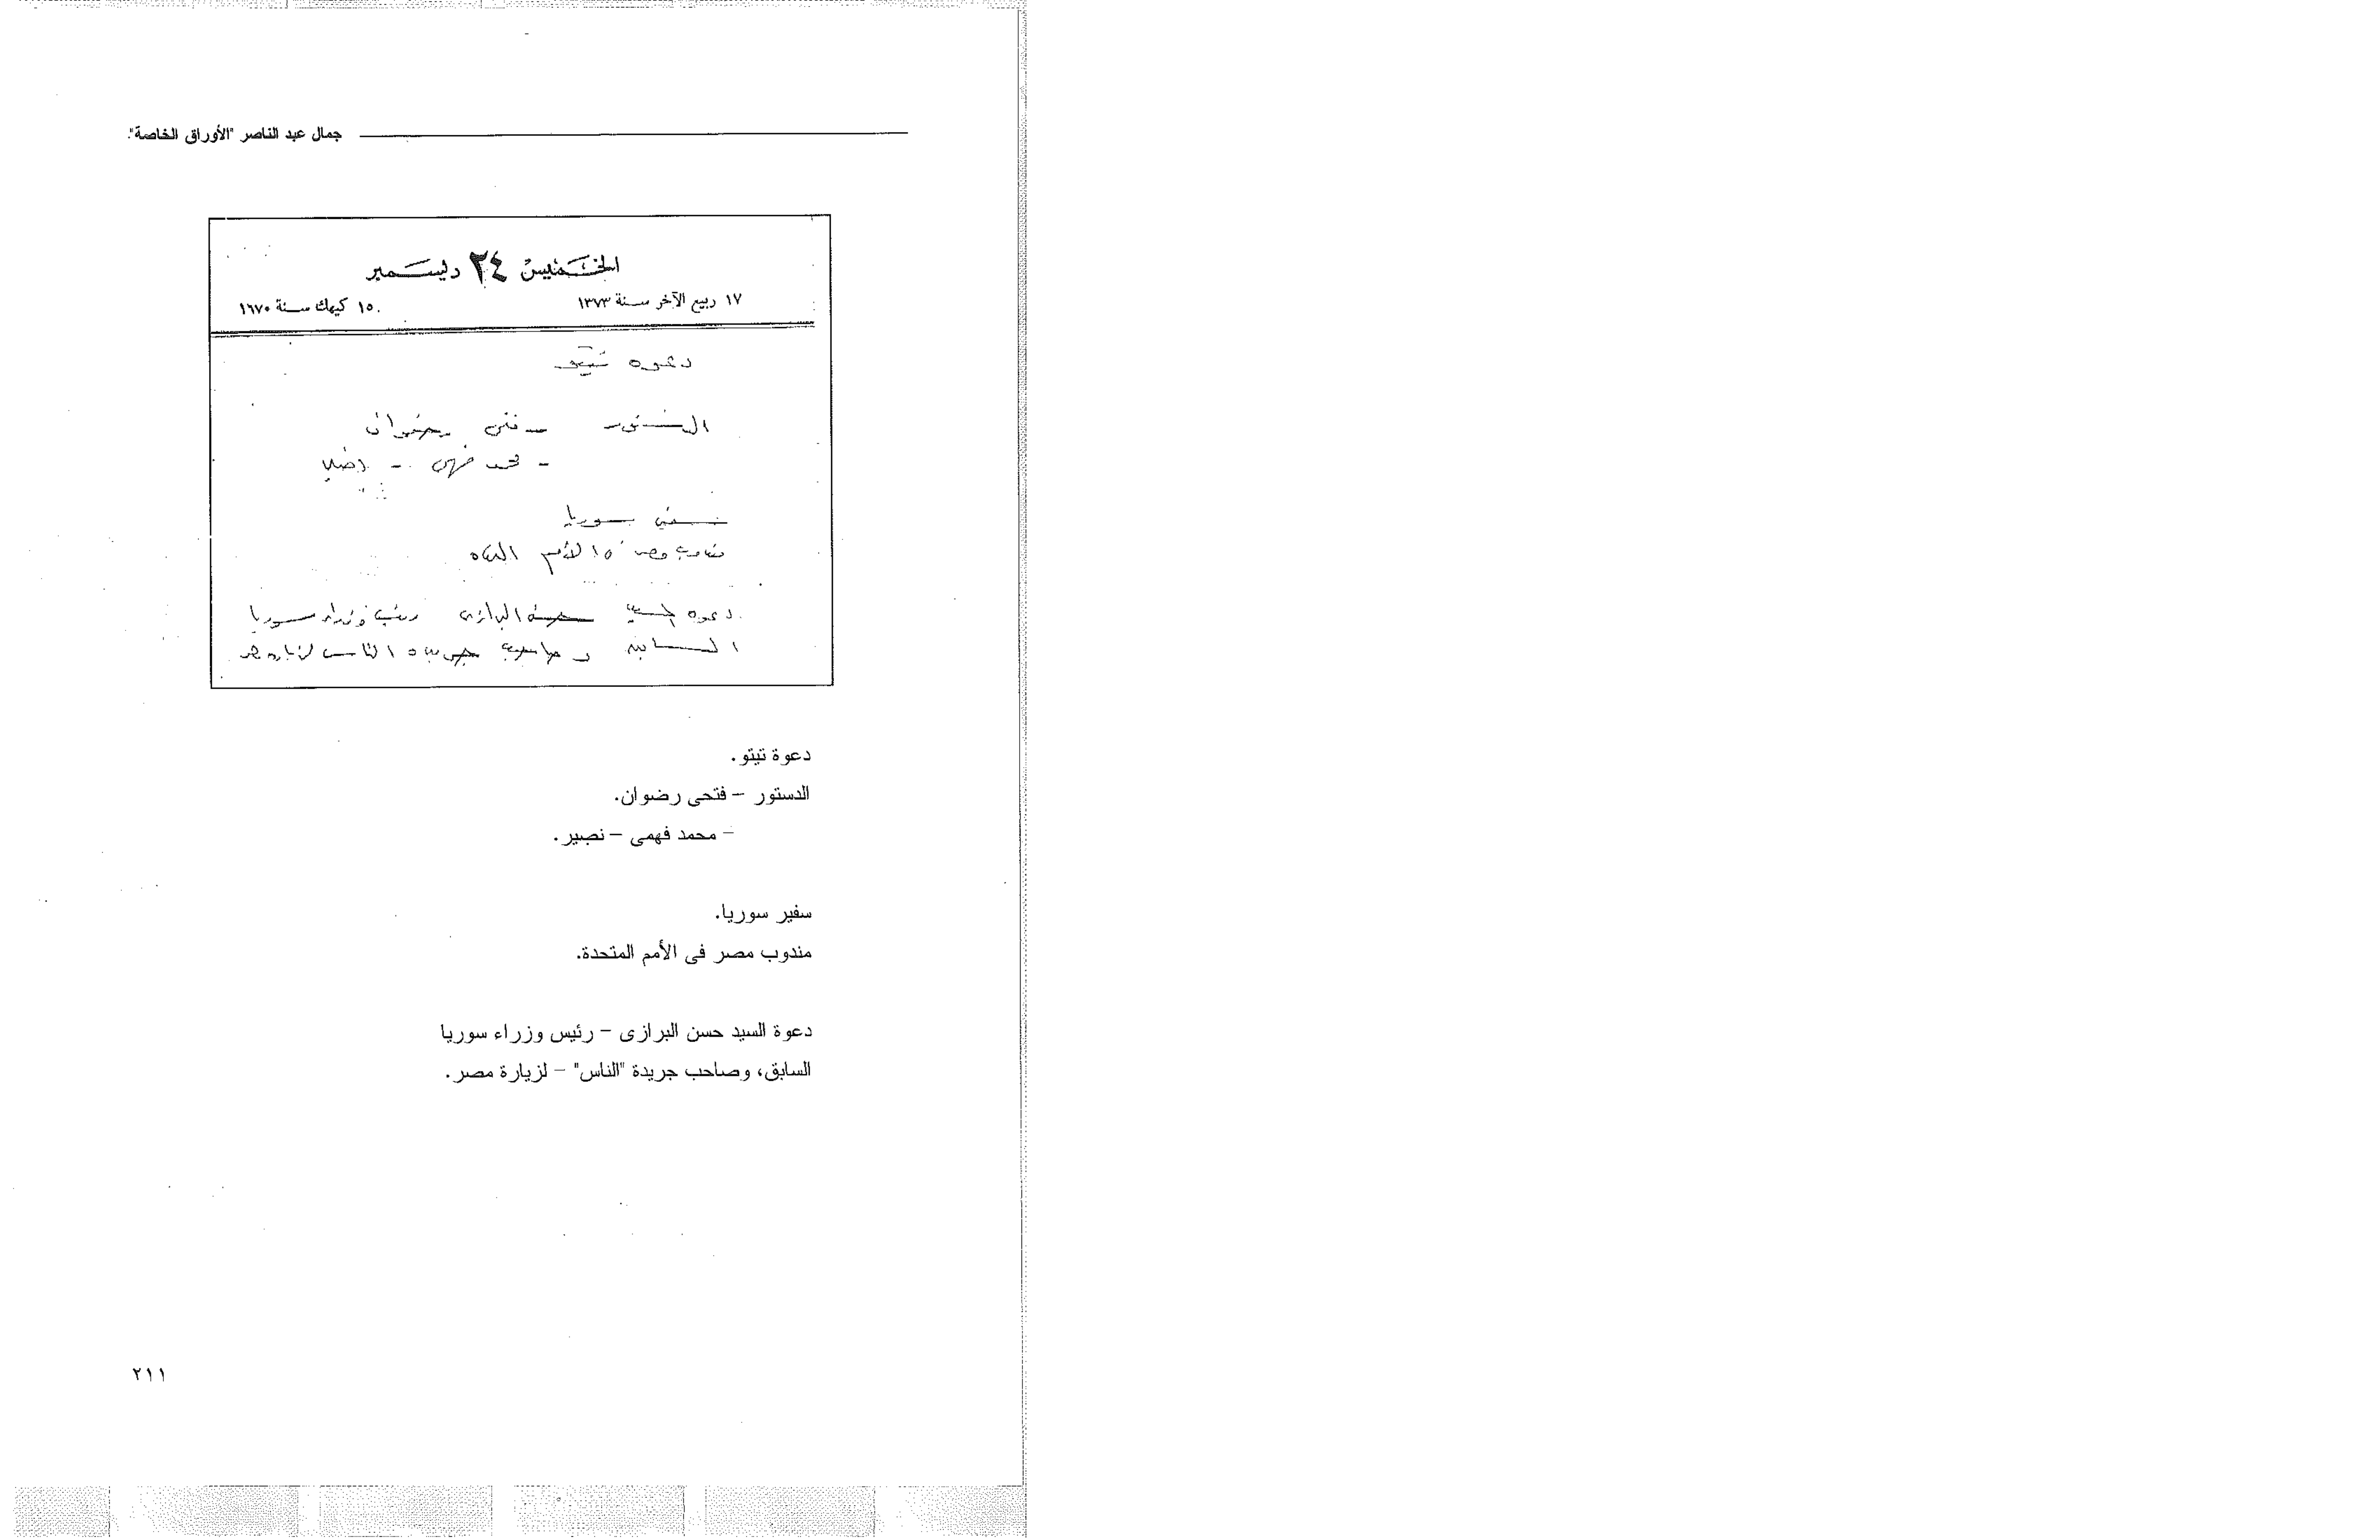 جمال عبد الناصر "الأوراق الخاصة"
الخميس ٢٤ ديسمبر
١٧ ربيع الآخر سنة ١٣٧٣
١٥ كيهك سنة ١٦٧٠
دعوه تيتو
الدستور – فتحى رضوان
– محمد فهمى –
سفير سوريا
مندوب مصر الأمم المتحده
دعوه السيد البرازى رئيس وزراء سوريا
السابق و صاحب جريده الناس لزياره مصر
دعوة تيتو.
الدستور – فتحى رضوان.
– محمد فهمى – نصير.
سفير سوريا.
مندوب مصر فى الأمم المتحدة.
دعوة السيد حسن البرازى – رئيس وزراء سوريا
السابق، وصاحب جريدة "الناس" – لزيارة مصر.
٢١١